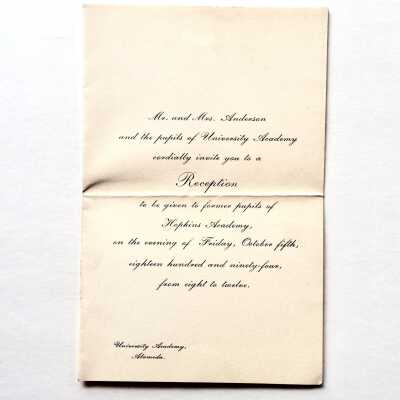 Mr. and Mrs. Anderson
and the pupils of University Academy
cordially invite you to a
Reception
to be given to former pupils of
Hopkins Academy,
on the evening of Friday, October fifth,
eighteen hundred and ninety-four,
from eight to twelve.
University Academy,
Alameda.